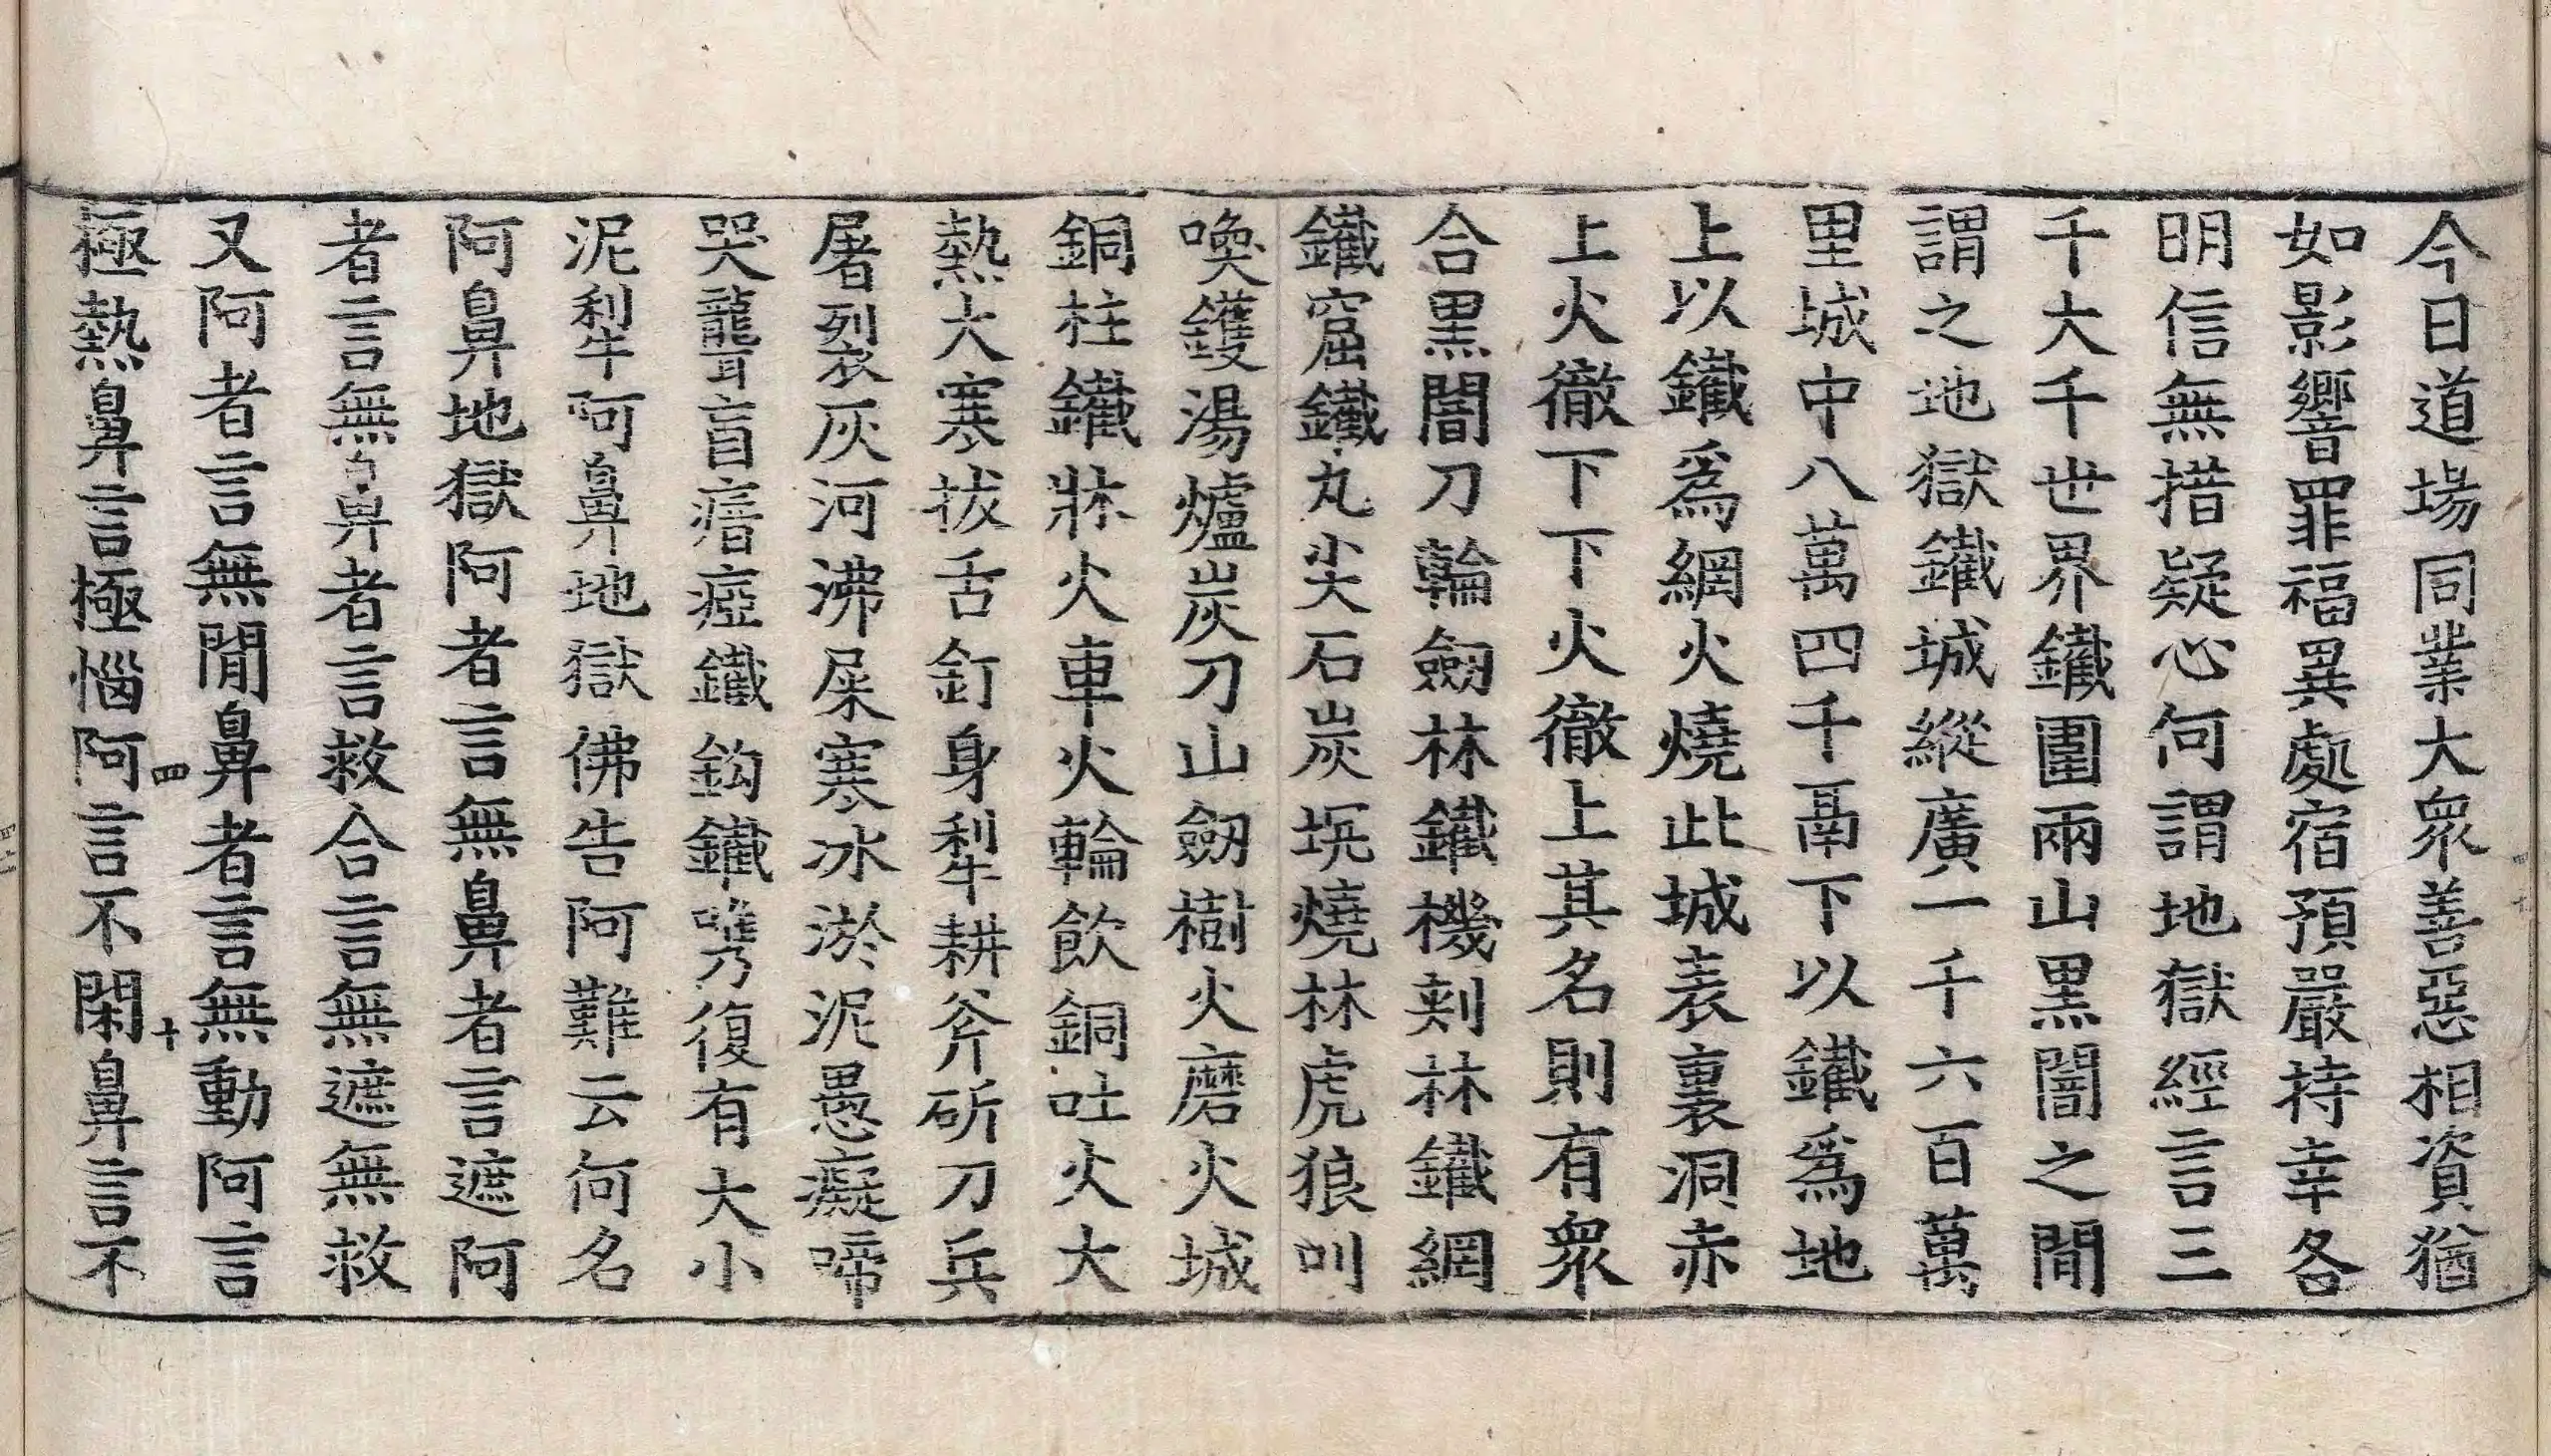 今日道場同業大衆善惡相資猶
如影響罪福異處宿預嚴持幸各
明信無措疑心何謂地獄經言三
千大千世界鐵圍兩山黑闇之閒
謂之地獄鐵城縱廣一千六百萬
里城中八萬四千鬲下以鐵爲地
上以鐵爲網火燒此城表裏洞赤
上火徹下下火徹上其名則有衆
合黑闇刀輪劒林鐵機刺林鐵網
鐵窟鐵丸尖石炭坑燒林虎狼叫
喚鑊湯爐炭刀山劒樹火磨火城
銅柱鐵牀火車火輪飮銅吐火大
熱大寒拔舌釘身犁耕斧斫刀兵
屠裂灰河沸屎寒冰淤泥愚癡啼
哭聾盲瘖瘂鐵鉤鐵㗛復有大小
泥犁阿鼻地獄佛告阿難云何名
阿鼻地獄阿者言無鼻者言遮阿
者言無鼻者言救合言無遮無救
又阿者言無閒鼻者言無動阿言
極熱鼻言極惱阿言不閑鼻言不
四
十